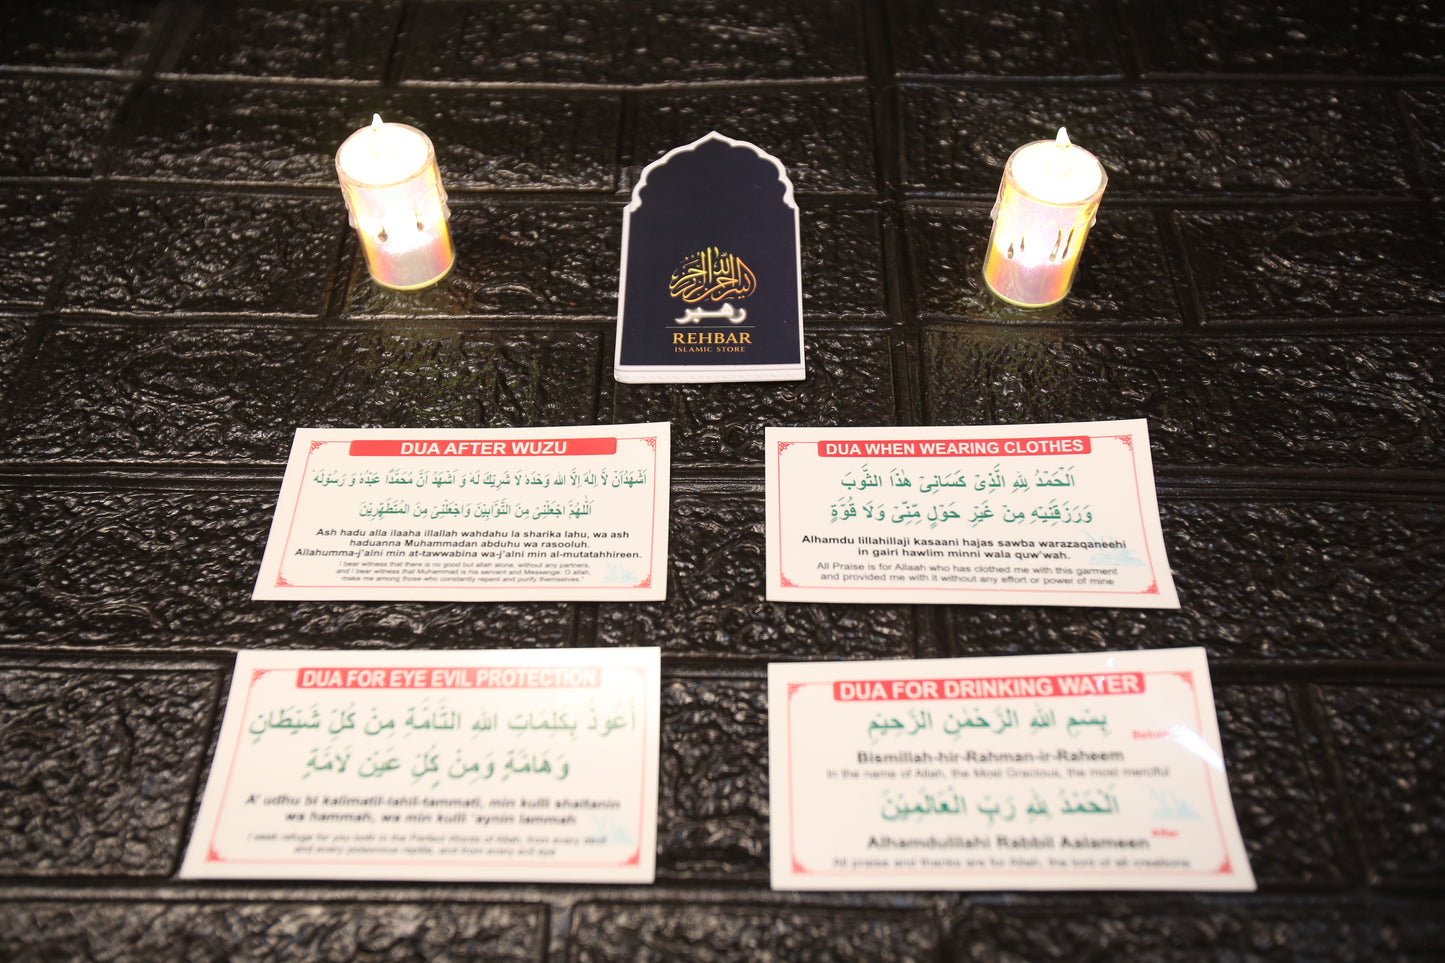 بسم الله الرحمن الرحيم
رهبر
REHBAR
ISLAMIC STORE
DUA AFTER WUZU
اَشْهَدُ اَنْ لَّا اِلٰهَ اِلَّا الله وَحْدَهٗ لَا شَرِيْكَ لَهٗ وَ اَشْهَدُ اَنَّ مُحَمَّدًا عَبْدُهٗ وَ رَسُوْلُهٗ
اَللّٰهُمَّ اجْعَلْنِيْ مِنَ التَّوَّابِيْنَ وَاجْعَلْنِيْ مِنَ الْمُتَطَهِّرِيْنَ
Ash hadu alla ilaaha illallah wahdahu la sharika lahu, wa ash
haduanna Muhammadan abduhu wa rasooluh.
Allahumma-j'alni min at-tawwabina wa-j'alni min al-mutatahhireen.
I bear witness that there is no good but allah alone, without any partners,
and I bear witness that Muhammad is his servant and Messenge: O allah,
make me among those who constantly repent and purify themselves."
DUA WHEN WEARING CLOTHES
اَلْحَمْدُ لِلّٰهِ الَّذِيْ كَسَانِيْ هٰذَا الثَّوْبَ
وَرَزَقَنِيْهِ مِنْ غَيْرِ حَوْلٍ مِّنِّيْ وَلَا قُوَّةٍ
Alhamdu lillahillaji kasaani hajas sawba warazaqaneehi
in gairi hawlim minni wala quw'wah.
All Praise is for Allaah who has clothed me with this garment
and provided me with it without any effort or power of mine
DUA FOR EYE EVIL PROTECTION
أَعُوذُ بِكَلِمَاتِ اللهِ التَّامَّةِ مِنْ كُلِّ شَيْطَانٍ
وَهَامَّةٍ وَمِنْ كُلِّ عَيْنٍ لَامَّةٍ
A' udhu bi kalimatil-lahil-tammati, min kulli shaitanin
wa hammah, wa min kulli 'aynin lammah
I seek refuge for you both in the Perfect Words of Allah, from every devil
and every poisonous reptile, and from every evil eye
DUA FOR DRINKING WATER
بِسْمِ اللهِ الرَّحْمٰنِ الرَّحِيْمِ
Before
Bismillah-hir-Rahman-ir-Raheem
In the name of Allah, the Most Gracious, the most merciful
اَلْحَمْدُ لِلّٰهِ رَبِّ الْعَالَمِيْنَ
After
Alhamdulillahi Rabbil Aalameen
All praise and thanks are for Allah, the lord of all creations